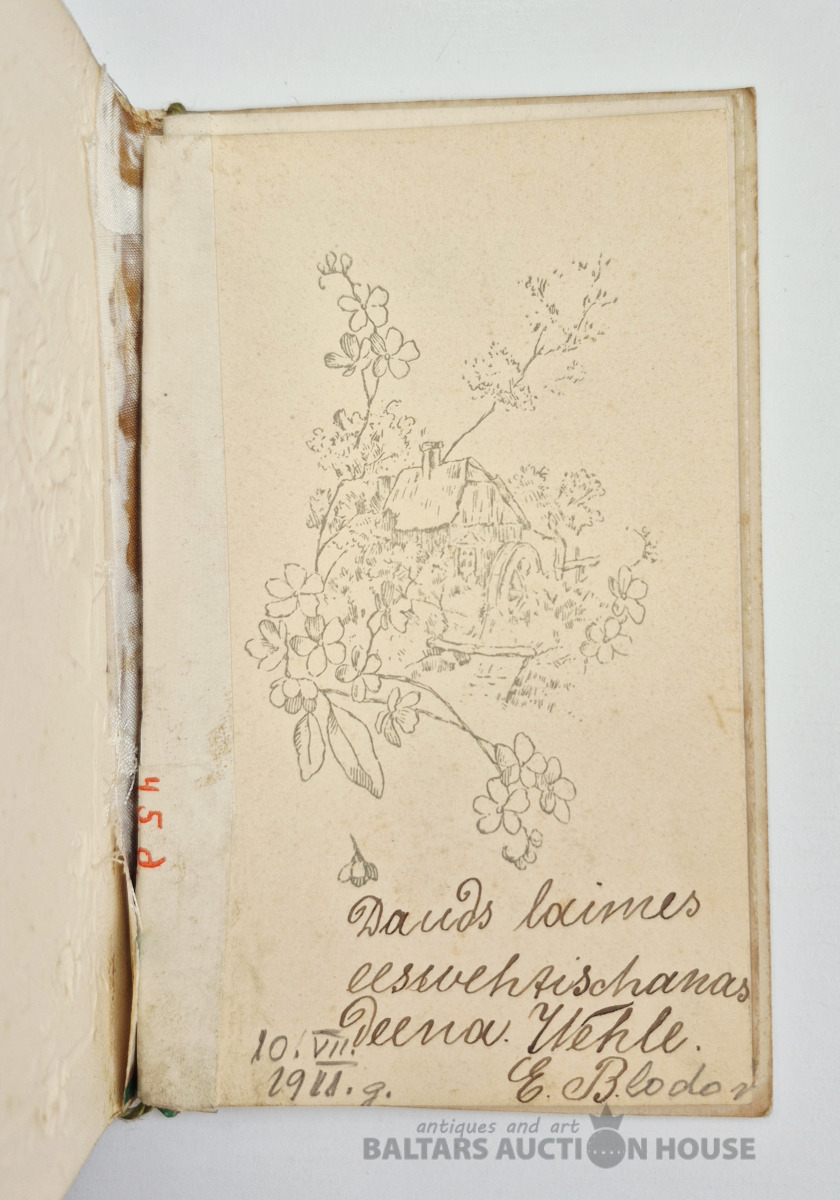 45 d
Dauds laimes
eeswehtischanas
deena. Wehle.
10. VII.
1911. g.
E. Blodon
antiques and art
BALTARS AUCTION HOUSE